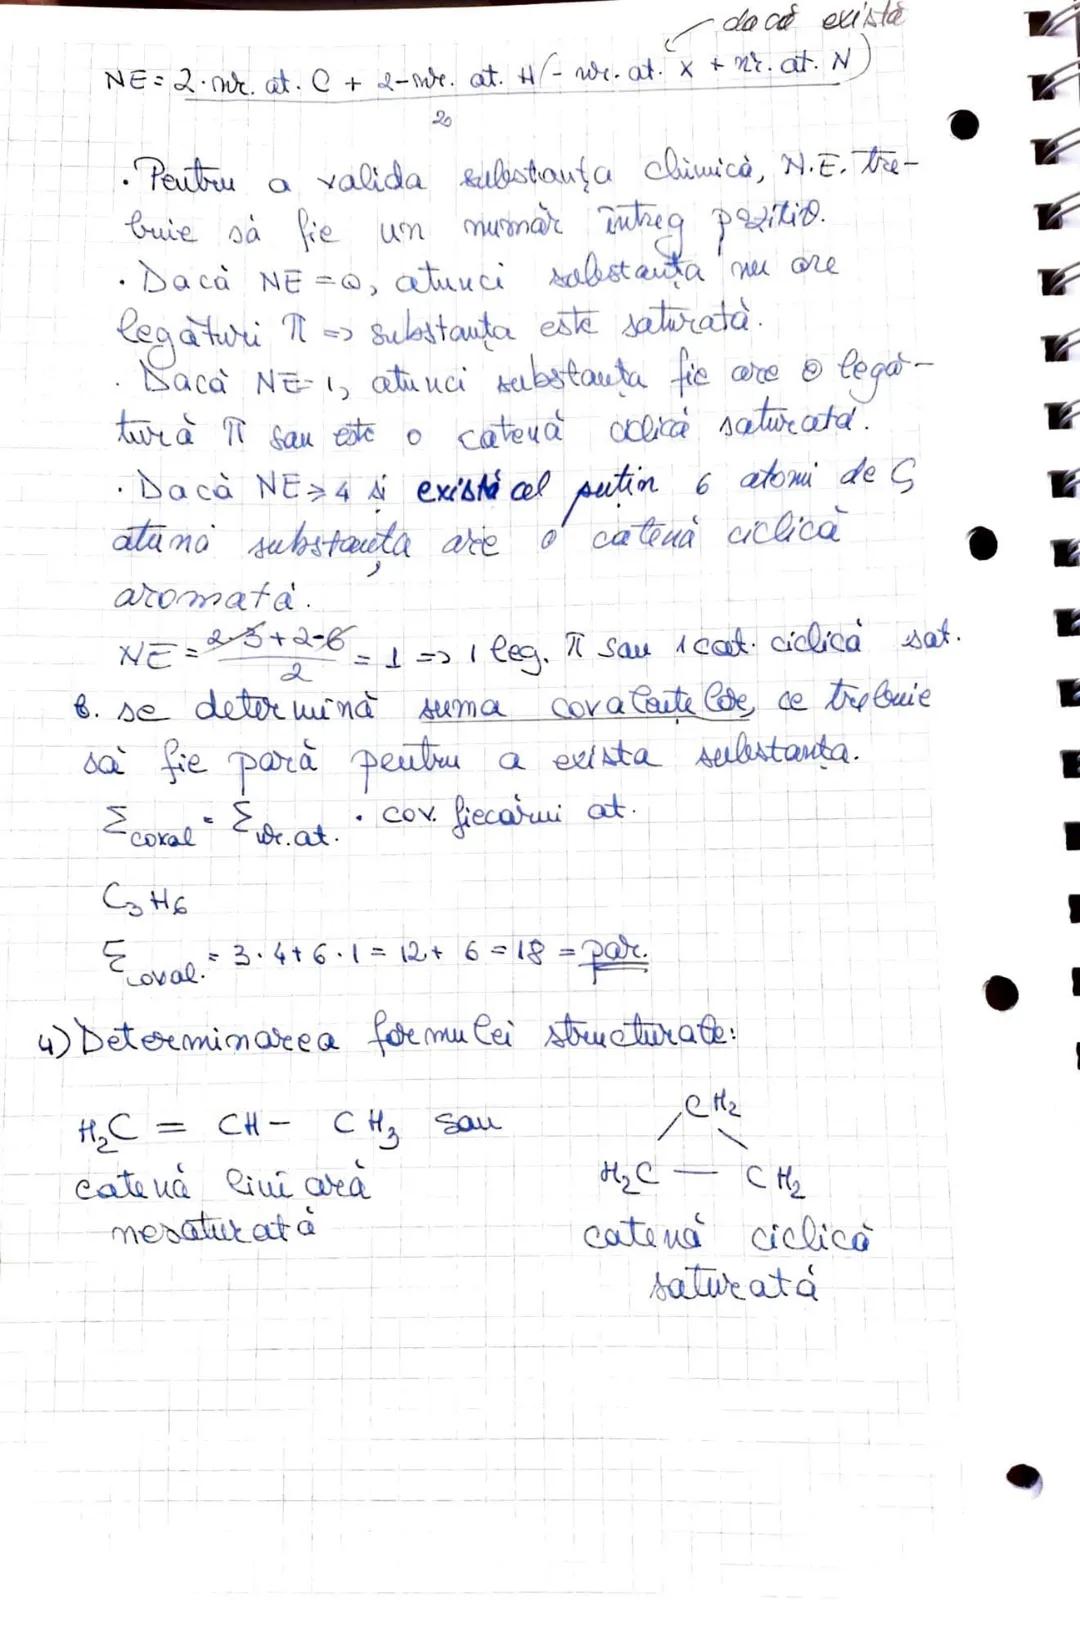 dacă există
NE = 2·nr. at. C + 2-nr. at. H (- nr. at. X + nr. at. N)
2
· Pentru a valida substanța chimică, N.E. tre-
buie să fie un număr întreg pozitiv.
· Dacă NE = 0, atunci substanța nu are
legături π => substanța este saturată.
· Dacă NE = 1, atunci substanța fie are o legă-
tură π sau este o catenă ciclică saturată.
· Dacă NE ≥ 4 și există cel puțin 6 atomi de C,
atunci substanța are o catenă ciclică
aromată.
NE = 2·3+2-6 / 2 = 1 => 1 leg. π sau 1 cat. ciclică sat.
b. se determină suma covalențelor, ce trebuie
să fie pară pentru a exista substanța.
Σ coval = Σ nr. at. · cov. fiecărui at.
C₃H₆
Σ coval. = 3·4+6·1 = 12+6 = 18 = par.
4) Determinarea formulei structurale:
H₂C = CH - CH₃ sau
CH₂
H₂C — CH₂
catenă liniară
nesaturată
catenă ciclică
saturată